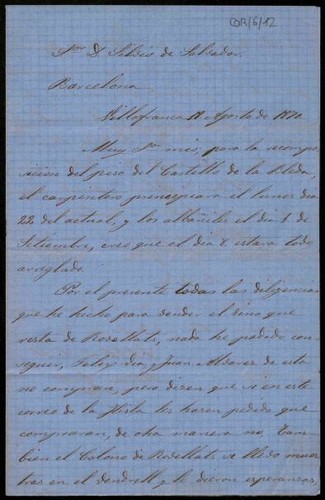 COR/6/12
Sr. D. Silvio de Salvador.
Barcelona.
Villafranca 18 Agosto de 1870.
Muy Sr. mio; para la recompo-
sicion del piso del Castillo de la Bleda,
el carpintero principiara el lunes dia
22 del actual, y los albañiles el dia 1 de
Setiembre, creo que el dia 8 estara todo
arreglado.
Por el presente todas las diligencias
que he hecho para vender el vino que
resta de Rosellats, nada he podido con-
seguir, Feliz dia y Juan Alvarez de esta
no compran, pero dicen que si en este
correo de la flota les hacen pedido que
compraran, de otra manera no, Tam-
bien el Colono de Rosellats se llevo mues-
tras en el Vendrell y le dieron esperanzas,